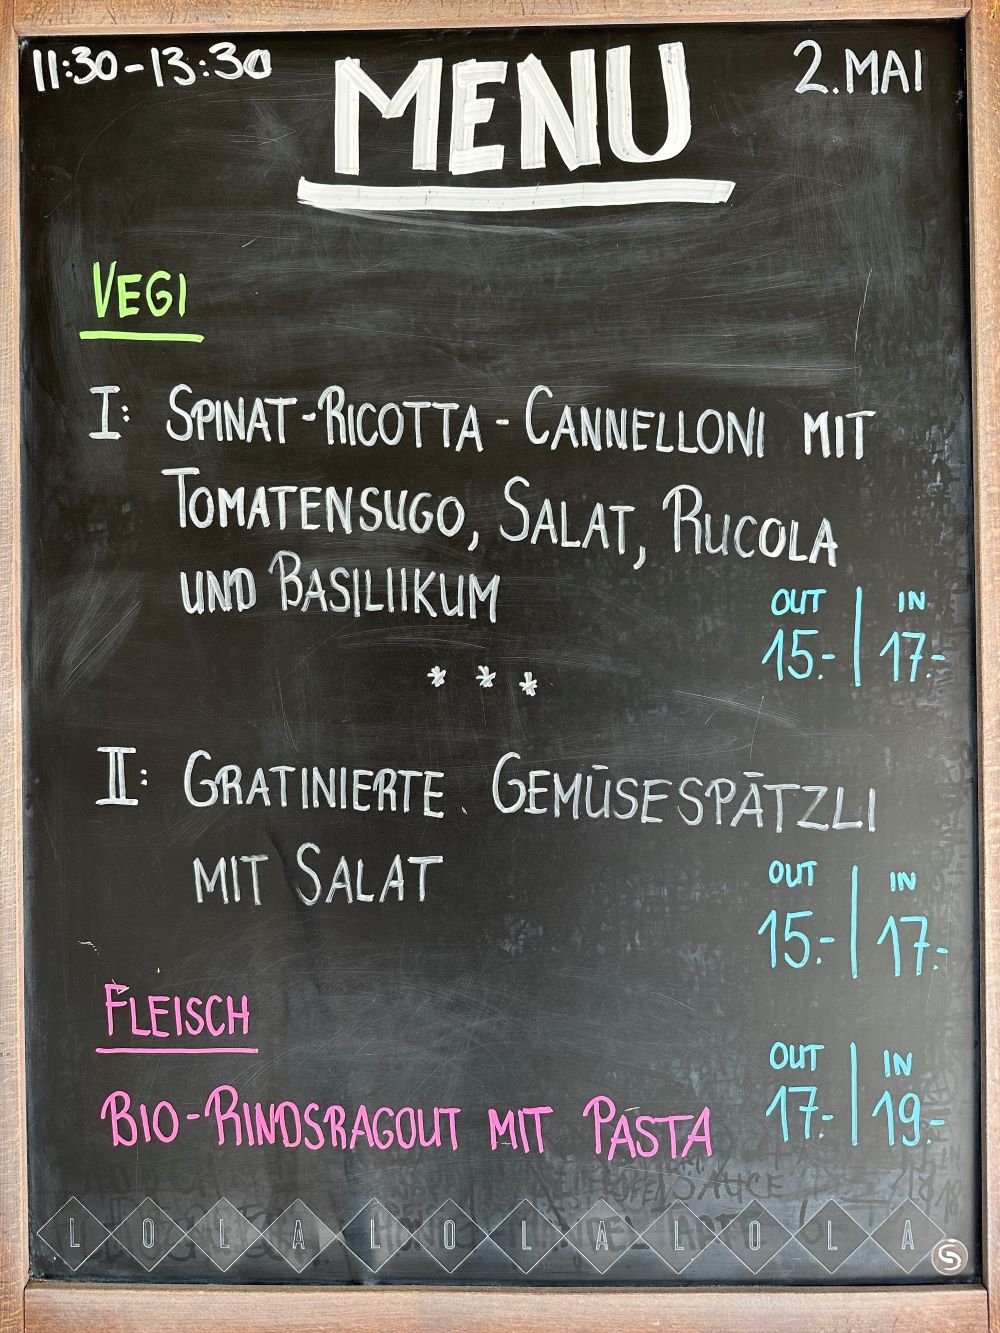 11:30-13:30
MENU
2.MAI
VEGI
I: SPINAT-RICOTTA-CANNELLONI MIT
TOMATENSUGO, SALAT, RUCOLA
UND BASILIIKUM
OUT | IN
15.- | 17.-
* * *
II: GRATINIERTE GEMÜSESPÄTZLI
MIT SALAT
OUT | IN
15.- | 17.-
FLEISCH
OUT | IN
17.- | 19.-
BIO-RINDSRAGOUT MIT PASTA
SAUCE
LOLALOLALOLA